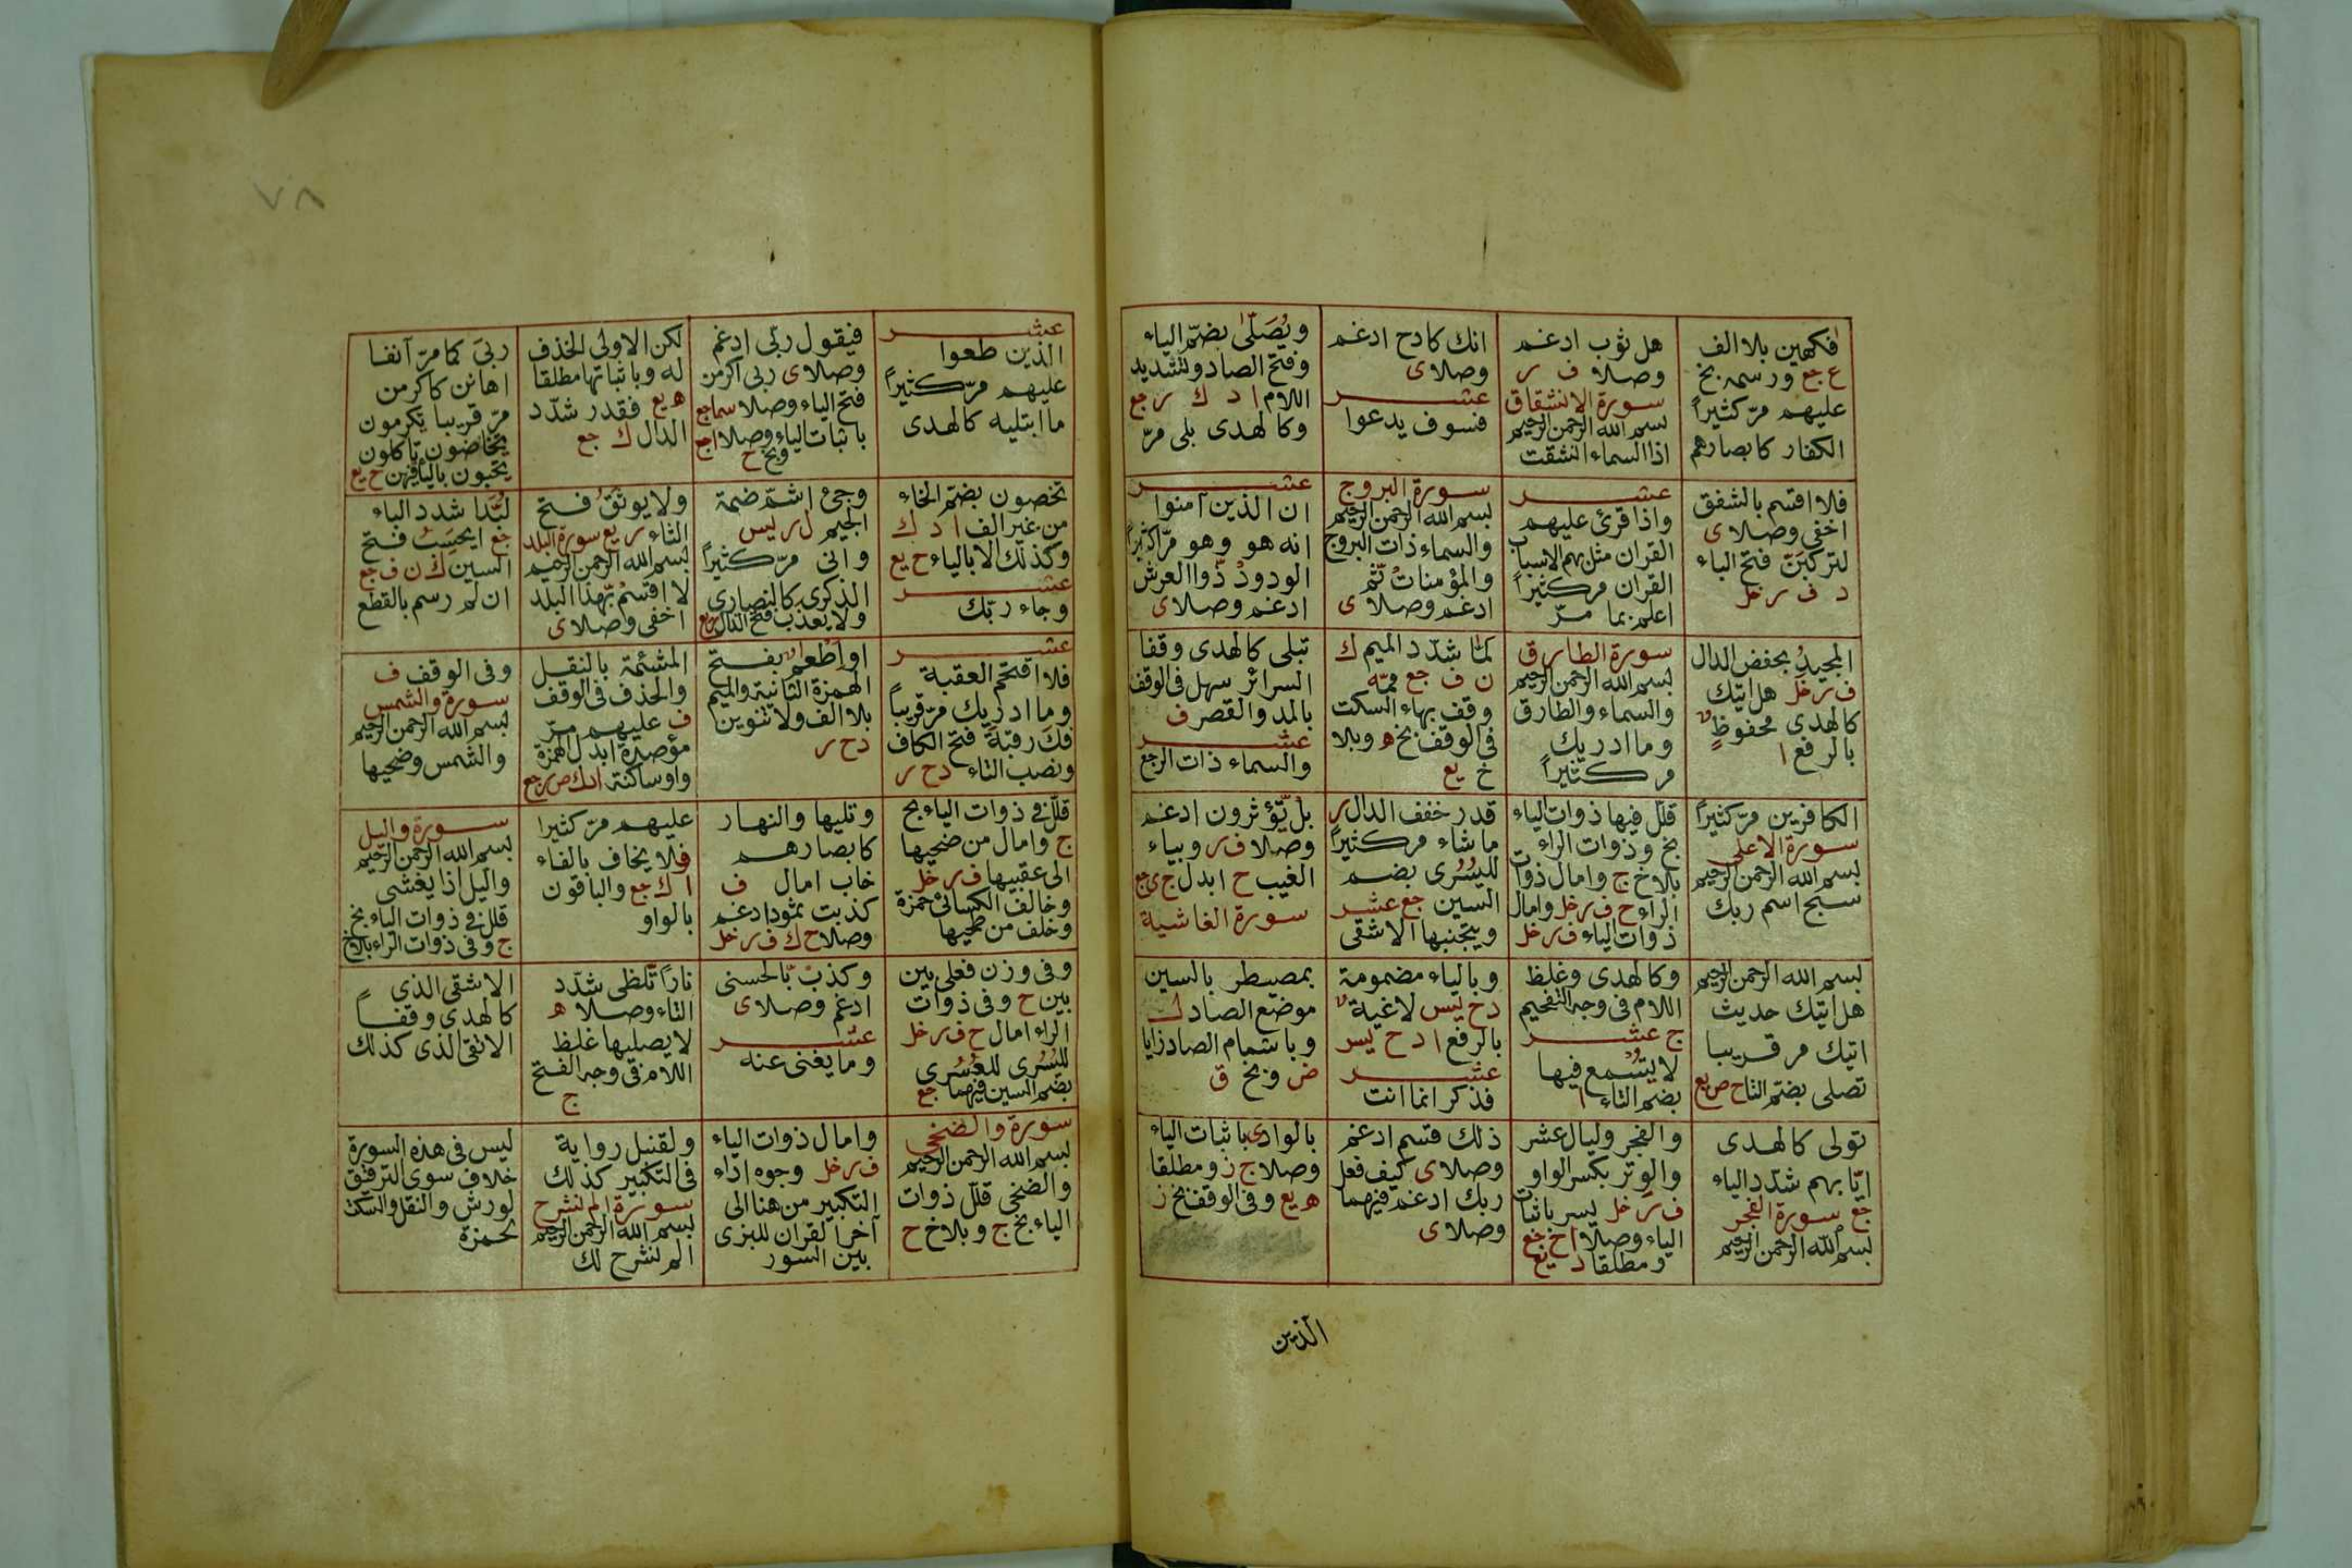 فكهين بلا الف
ع جع ورسمه بخ
عليهم مرّ كثيراً
الكفار كابصارهم
هل ثوب ادغم
وصلا ف ر
سورة الانشقاق
بسم الله الرحمن الرحيم
اذا السماء انشقت
انك كادح ادغم
وصلا ى
عشر
فسوف يدعوا
ويُصَلّى بضمّ الياء
وفتح الصاد وتشديد
اللام ا د ك ر جع
وكالهدى بلى مرّ
فلا اقسم بالشفق
اخفى وصلا ى
لتركبَنّ فتح الباء
د ف ر خل
عشر
واذا قرئ عليهم
القران مثل بهم الاسباب
القران مر كثيراً
اعلم بما مرّ
سورة البروج
بسم الله الرحمن الرحيم
والسماء ذات البروج
والمؤمنات ثّم
ادغم وصلا ى
عشر
ان الذين آمنوا
انه هو وهو مرّا كثيراً
الودودُ ذّوا العرش
ادغم وصلا ى
المجيدِ بخفض الدال
ف ر خل هل اتيك
كالهدى محفوظٍ
بالرفع ا
سورة الطارق
بسم الله الرحمن الرحيم
والسماء والطارق
وما ادريك
مر كثيراً
لمّا شدّد الميم ك
ن ف جع ممّه
وقف بهاء السكت
فى الوقف بخ ه وبلا
خ يع
تبلى كالهدى وقفا
السرائر سهل فى الوقف
بالمد والقصر ف
عشر
والسماء ذات الرجع
الكافرين مرّ كثيراً
سورة الاعلى
بسم الله الرحمن الرحيم
سبح اسم ربك
قلّل فيها ذوات الياء
بخ وذوات الراء
بلاخ ج وامال ذوات
الراء ح ف ر خل وامال
ذوات الياء ف ر خل
قدر خفف الدال ر
ما شاء مر كثيراً
لليُسُرى بضم
السين جع عشر
ويتجنبها الاشقى
بل تّؤثرون ادغم
وصلا ف ر وبياء
الغيب ح ابدل ج ى جع
سورة الغاشية
بسم الله الرحمن الرحيم
هل اتيك حديث
اتيك مر قريبا
تصلى بضم التا ح ص يع
وكالهدى وغلظ
اللام فى وجه التفخيم
ج عشر
لا يُسْمع فيها
بضم التاء ا
وبالياء مضمومة
د ح يس لاغيةً
بالرفع ا د ح يس
عشر
فذكر انما انت
بمصيطر بالسين
موضع الصاد ل
وباشمام الصاد زايا
ض وبخ ق
تولى كالهدى
ايّابهم شدّد الياء
جع سورة الفجر
بسم الله الرحمن الرحيم
والفجر وليال عشر
والوتر بكسر الواو
ف ر خل يسر باثبات
الياء وصلا ا ح جع
ومطلقا د يع
ذلك قسم ادغم
وصلا ى كيف فعل
ربك ادغم فيهما
وصلا ى
بالوادى باثبات الياء
وصلا ج ز ومطلقا
ه يع وفى الوقف بخ ز
الذين
٧٨
عشر
الذين طغوا
عليهم مرّ كثيراً
ما ابتليه كالهدى
فيقول ربّى ادغم
وصلا ى ربى اكرمن
فتح الياء وصلا سما جع
باثبات الياء وصلا ا جع
وبخ ح
لكن الاولى الحذف
له وباثباتها مطلقا
ه يع فقدر شدّد
الدال ك جع
ربىَ كما مرّ آنفا
اهانن كاكرمن
مرّ قريبا يكرمون
يحاضون ياكلون
يحبون بالياء فيهن ح يع
تحضون بضم الحاء
من غير الف ا د ك
وكذلك الا بالياء ح يع
عشر
وجاء ربّك
وجئ اشمّ ضمة
الجيم ل ر يس
وانى مرّ كثيراً
الذكرى كالنصارى
ولا يعذب فتح الذال ر يع
ولا يوثَق فتح
الثاء ر يع سورة البلد
بسم الله الرحمن الرحيم
لا اقسمُ بّهذا البلد
اخفى وصلا ى
لبُّدا شدد الباء
جع ايحسَبُ فتح
السين ك ن ف جع
ان لم رسم بالقطع
عشر
فلا اقتحم العقبة
وما ادريك مرّ قريباً
فكَ رقبةً فتح الكاف
ونصب التاء د ح ر
او اَطْعم بفتح
الهمزة الثانية والميم
بلا الف ولا تنوين
د ح ر
المشئمة بالنقل
والحذف فى الوقف
ف عليهم مرّ
مؤصدة ابدل الهمزة
واو ساكنة ا د ك ص ر جع
وفى الوقف ف
سورة والشمس
بسم الله الرحمن الرحيم
والشمس وضحيها
قلّل فى ذوات الياء بخ
ج وامال من ضحيها
الى عقبيها ف ر خل
وخالف الكسائى حمزة
وخلف من طحيها
وتليها والنهار
كابصارهم
خاب امال ف
كذبت ثمود ادغم
وصلا ح ك ف ر خل
عليهم مرّ كثيرا
فلا يخاف بالفاء
ا ك جع والباقون
بالواو
سورة واليل
بسم الله الرحمن الرحيم
واليل اذا يغشى
قلل فى ذوات الياء بخ
ج وفى ذوات الراء بلاخ
وفى وزن فعلى بين
بين ح وفى ذوات
الراء امال ح ف ر خل
لليُسُرى للعُسُرى
بضم السين فيهما جع
وكذبْ بّالحسنى
ادغم وصلا ى
عشر
وما يغنى عنه
ناراً تّلظى شدّد
التاء وصلا ه
لا يصليها غلظ
اللام فى وجه الفتح
ج
الاشقى الذى
كالهدى وقفاً
الاتقى الذى كذلك
سورة والضحى
بسم الله الرحمن الرحيم
والضحى قلّل ذوات
الياء بخ ج وبلاخ ح
وامال ذوات الياء
ف ر خل وجوه اداء
التكبير من هنا الى
آخر القران للبزى
بين السور
ولقنبل رواية
فى التكبير كذلك
سورة الم نشرح
بسم الله الرحمن الرحيم
الم نشرح لك
ليس فى هذه السورة
خلاف سوى الترقيق
لورش والنقل والسكت
لحمزة